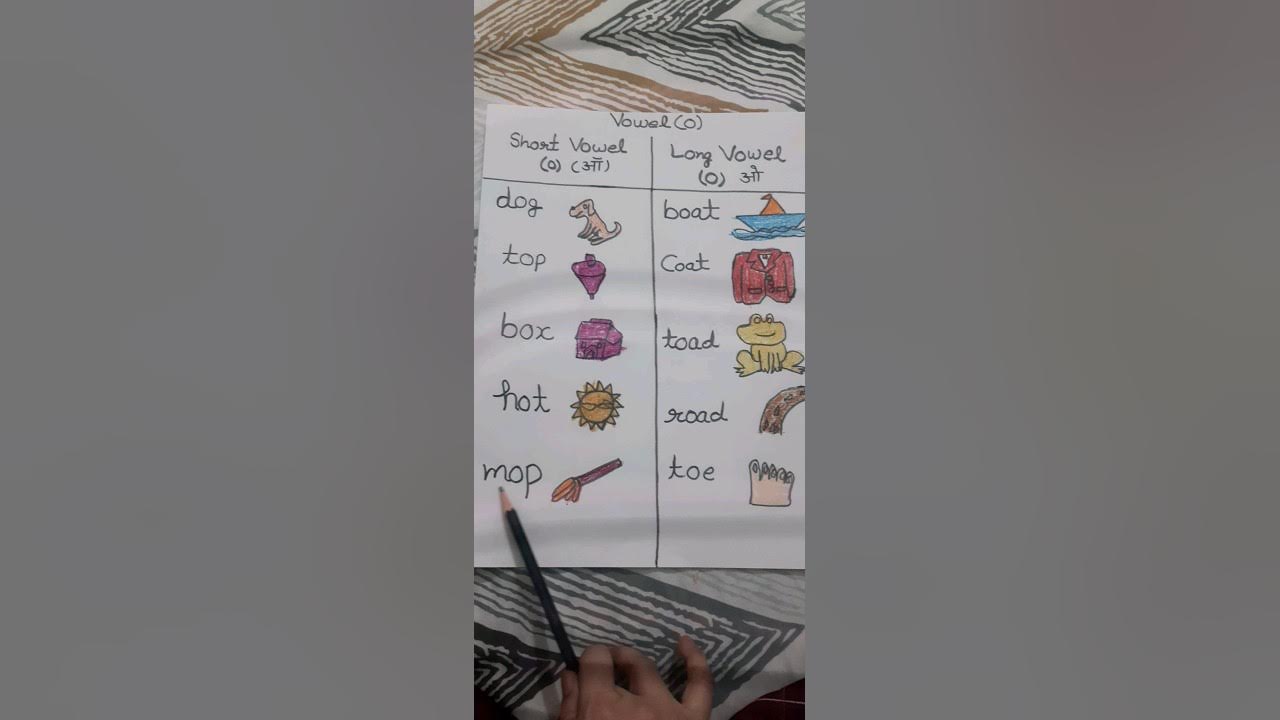 Vowel (o)
Short Vowel
(o) (ऑ)
Long Vowel
(O) ओ
dog
top
box
hot
mop
boat
Coat
toad
road
toe